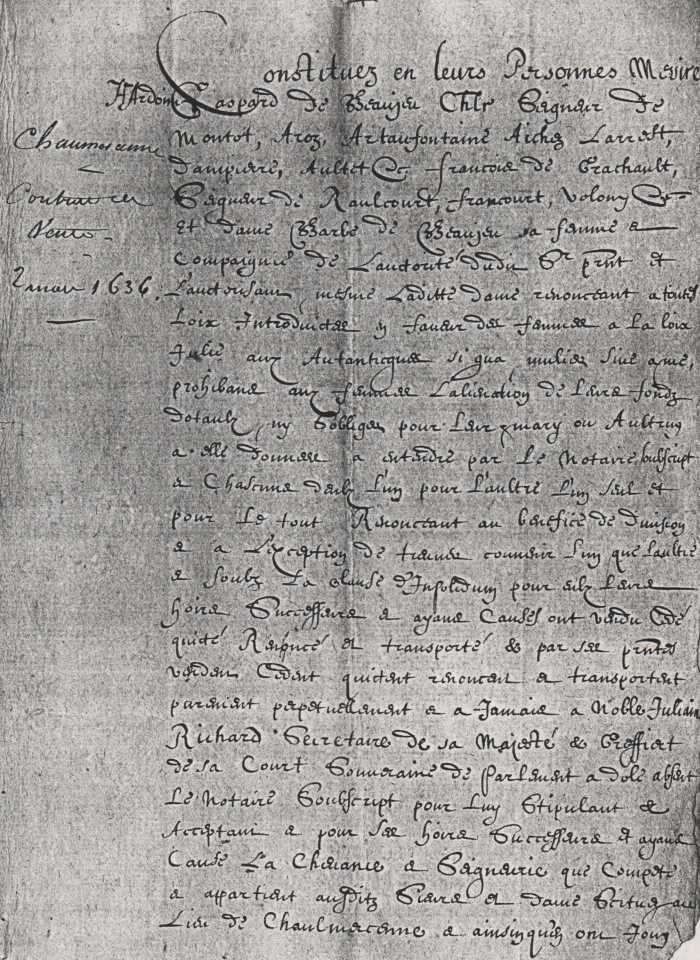 Constituez en leurs Personnes Messire
Hardouin Gaspard de Beaujeu Chlr Seigneur de
Montot, Aroz, Artaufontaine Aichez Larrest,
Dampierre, Aultet &c. françois de Grachault,
Seigneur de Raulcourt, francourt, Volony &c
et dame Barbe de Beaujeu sa femme e
Compaignie de Lauctorité dudit Sr prnt et
Lauctorisant, mesme Laditte dame renonceant a toutes
Loix Introduictes en faveur des femmes a la loix
Julie aux Autanticques si qua mulier sive a me,
prohibans aux femmes L'alienation de leurs fondz
dotaulx, ny s'obliger pour leur mary ou Aultruy
a elle donnees a entendre par Le Notaire subscript
e Chascune d'eulx L'un pour L'aultre L'un seul et
pour Le tout Renonceant au benefice de Division
e a L'exception de convenir L'un que Laultre
e soubz La clause d'Insolidum pour eulx Leurs
hoirs Successeurs e ayans Causes ont vendu Cedé
quicté Renoncé et transporté & par ses prntes
vendent Cedent quictent renoncent e transportent
purement perpetuellement e a Jamais a Noble Julian
Richard Secretaire de sa Majesté & Greffier
de sa Court Souveraine de parlement a dole absent
Le Notaire Soubscript pour Luy Stipulant &
Acceptant e pour ses hoirs Successeurs et ayans
Cause La Chevance e Seigneurie que Compete
e appartient ausditz Sieurs et dame Scitue au
Lieu de Chaulmercenne e ainsin qu'ilz ont Jouy
Chaumercenne
Contract de
Vente
2 mars 1636.